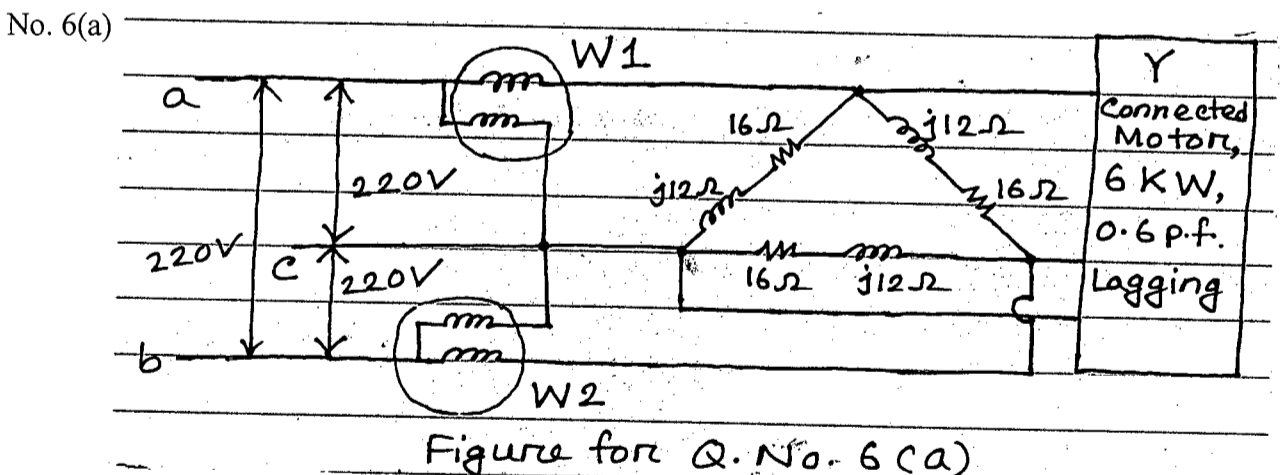 No. 6(a)
W1
a
220V
220V
c
220V
b
W2
16Ω
j12Ω
j12Ω
16Ω
16Ω
j12Ω
Y
Connected
Motor,
6 KW,
0.6 p.f.
Lagging
Figure for Q. No. 6 (a)